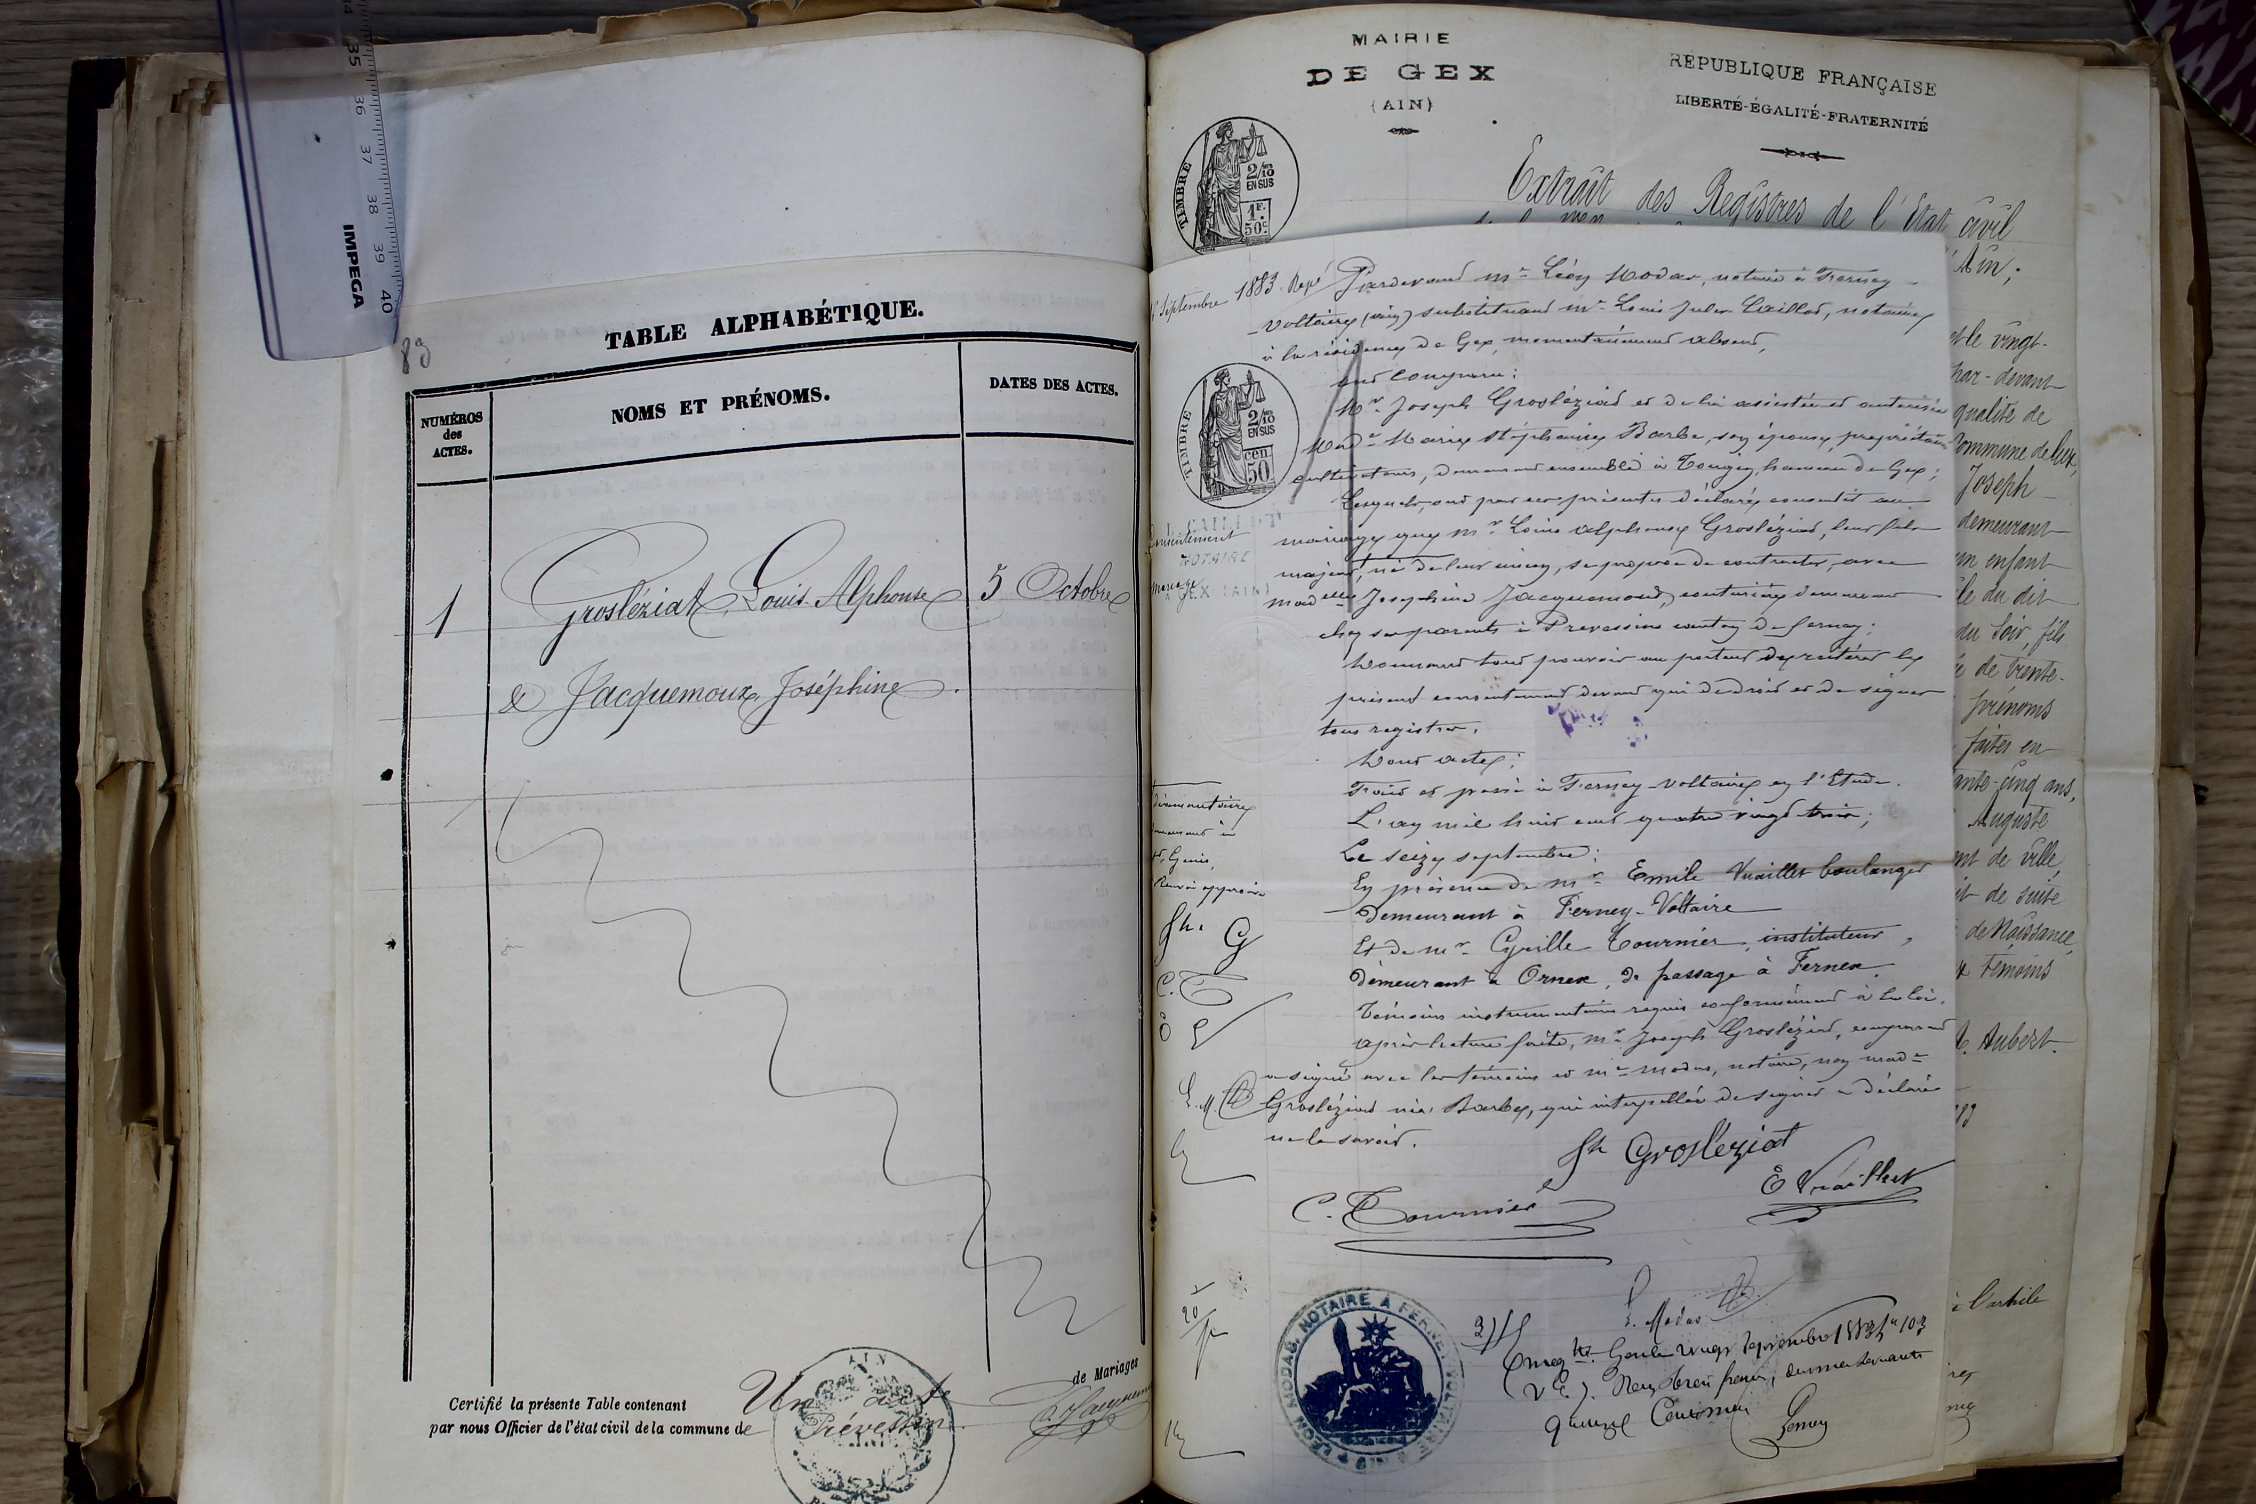 35
36
37
38
39
40
IMPEGA
83
TABLE ALPHABÉTIQUE.
NUMÉROS
des
ACTES.
NOMS ET PRÉNOMS.
DATES DES ACTES.
1
Grosléziat, Louis-Alphonse
5 Octobre
& Jacquemoux, Joséphine.
Certifié la présente Table contenant Un acte de Mariages
par nous Officier de l'état civil de la commune de Prévessin
AIN
MAIRIE
DE GEX
(AIN)
RÉPUBLIQUE FRANÇAISE
LIBERTÉ-ÉGALITÉ-FRATERNITÉ
TIMBRE
2/10
EN SUS
1F.
50c
Extrait des Registres de l'Etat civil
Ain;
Septembre 1883.
Pardevant Me Léon Modas, notaire à Ferney-
Voltaire (Ain) substituant Me Louis Jules Caillot, notaire
à la résidence de Gex, momentanément absent,
ont comparu:
Mr Joseph Grosléziat et de lui assistée et autorisée
Made Marie Stéphanie Barbe, son épouse, propriétaires
cultivateurs, demeurant ensemble à Tougin, hameau de Gex;
Lesquels, ont par ces présentes déclaré consentir au
mariage que Mr Louis Alphonse Grosléziat, leur fils
majeur, né de leur union, se propose de contracter, avec
Madelle Joséphine Jacquemoux, couturière demeurant
chez ses parents à Prevessins canton de Ferney;
Donnant tout pouvoir au porteur de réitérer le
présent consentement devant qui de droit et de signer
tous registres.
Dont acte;
Fait et passé à Ferney-Voltaire en l'Etude.
L'an mil huit cent quatre vingt trois;
Le seize septembre;
En présence de Mr Emile Vuaillet boulanger
demeurant à Ferney-Voltaire
Et de Mr Cyrille Tournier, instituteur,
demeurant à Ornex, de passage à Fernex.
Témoins instrumentaires requis conformément à la loi.
Après lecture faite, Mr Joseph Grosléziat, comparant
a signé avec les témoins et Me Modas, notaire, non Made
Grosléziat née Barbe, qui interpellée de signer a déclaré
ne le savoir.
Jh Grosléziat
C. Tournier
E Vuaillet
L. Modas
TIMBRE
2/10
EN SUS
cen.
50
NOTAIRE
GEX (AIN)
mariage
Jh. G
C. T
E V
L. M.
LÉON MODAS, NOTAIRE A FERNEY-VOLTAIRE
qualité de
Commune de Gex,
Joseph
demeurant
un enfant
du soir, fils
de trente-
prénoms
faites en
Auguste
de ville,
de suite
de Naissance,
témoins
Aubert.
l'article